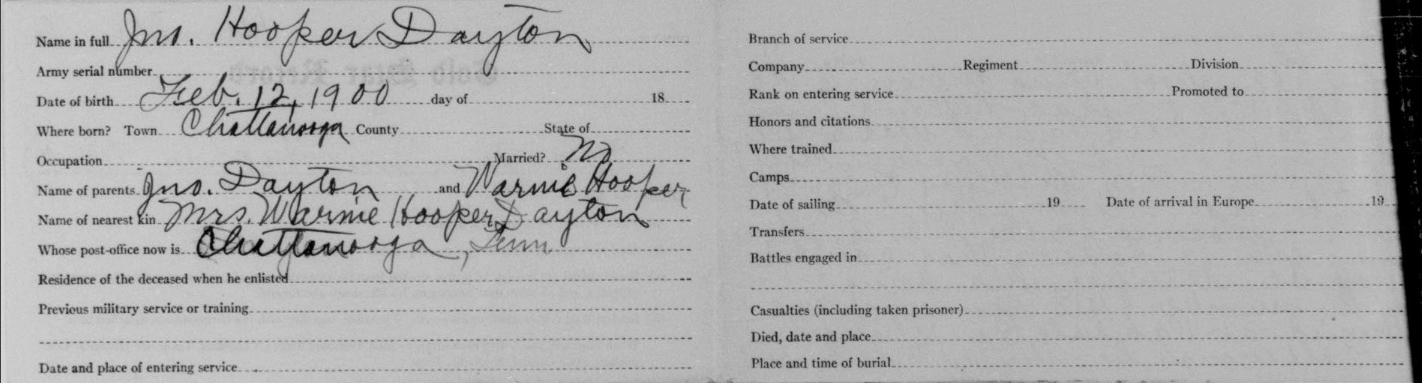 Name in full Jno. Hooper Dayton
Army serial number
Date of birth Feb. 12, 1900 day of 18
Where born? Town Chattanooga County State of
Occupation Married? No
Name of parents Jno. Dayton and Warnie Hooper
Name of nearest kin Mrs Warnie Hooper Dayton
Whose post-office now is Chattanooga, Tenn
Residence of the deceased when he enlisted
Previous military service or training
Date and place of entering service
Branch of service
Company Regiment Division
Rank on entering service Promoted to
Honors and citations
Where trained
Camps
Date of sailing 19 Date of arrival in Europe 19
Transfers
Battles engaged in
Casualties (including taken prisoner)
Died, date and place
Place and time of burial